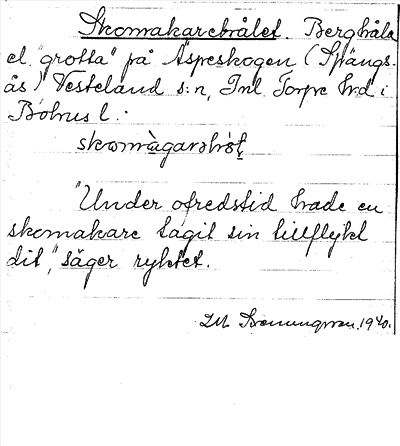 Skomakarehålet. Berghåla
el. "grotta" på Aspeskogen (Spängs-
ås) Vesteland s:n, Inl. Torpe hrd i
Bohus l.:
"Under ofredstid hade en
skomakare tagit sin tillflykt
dit," säger ryktet.
1940.